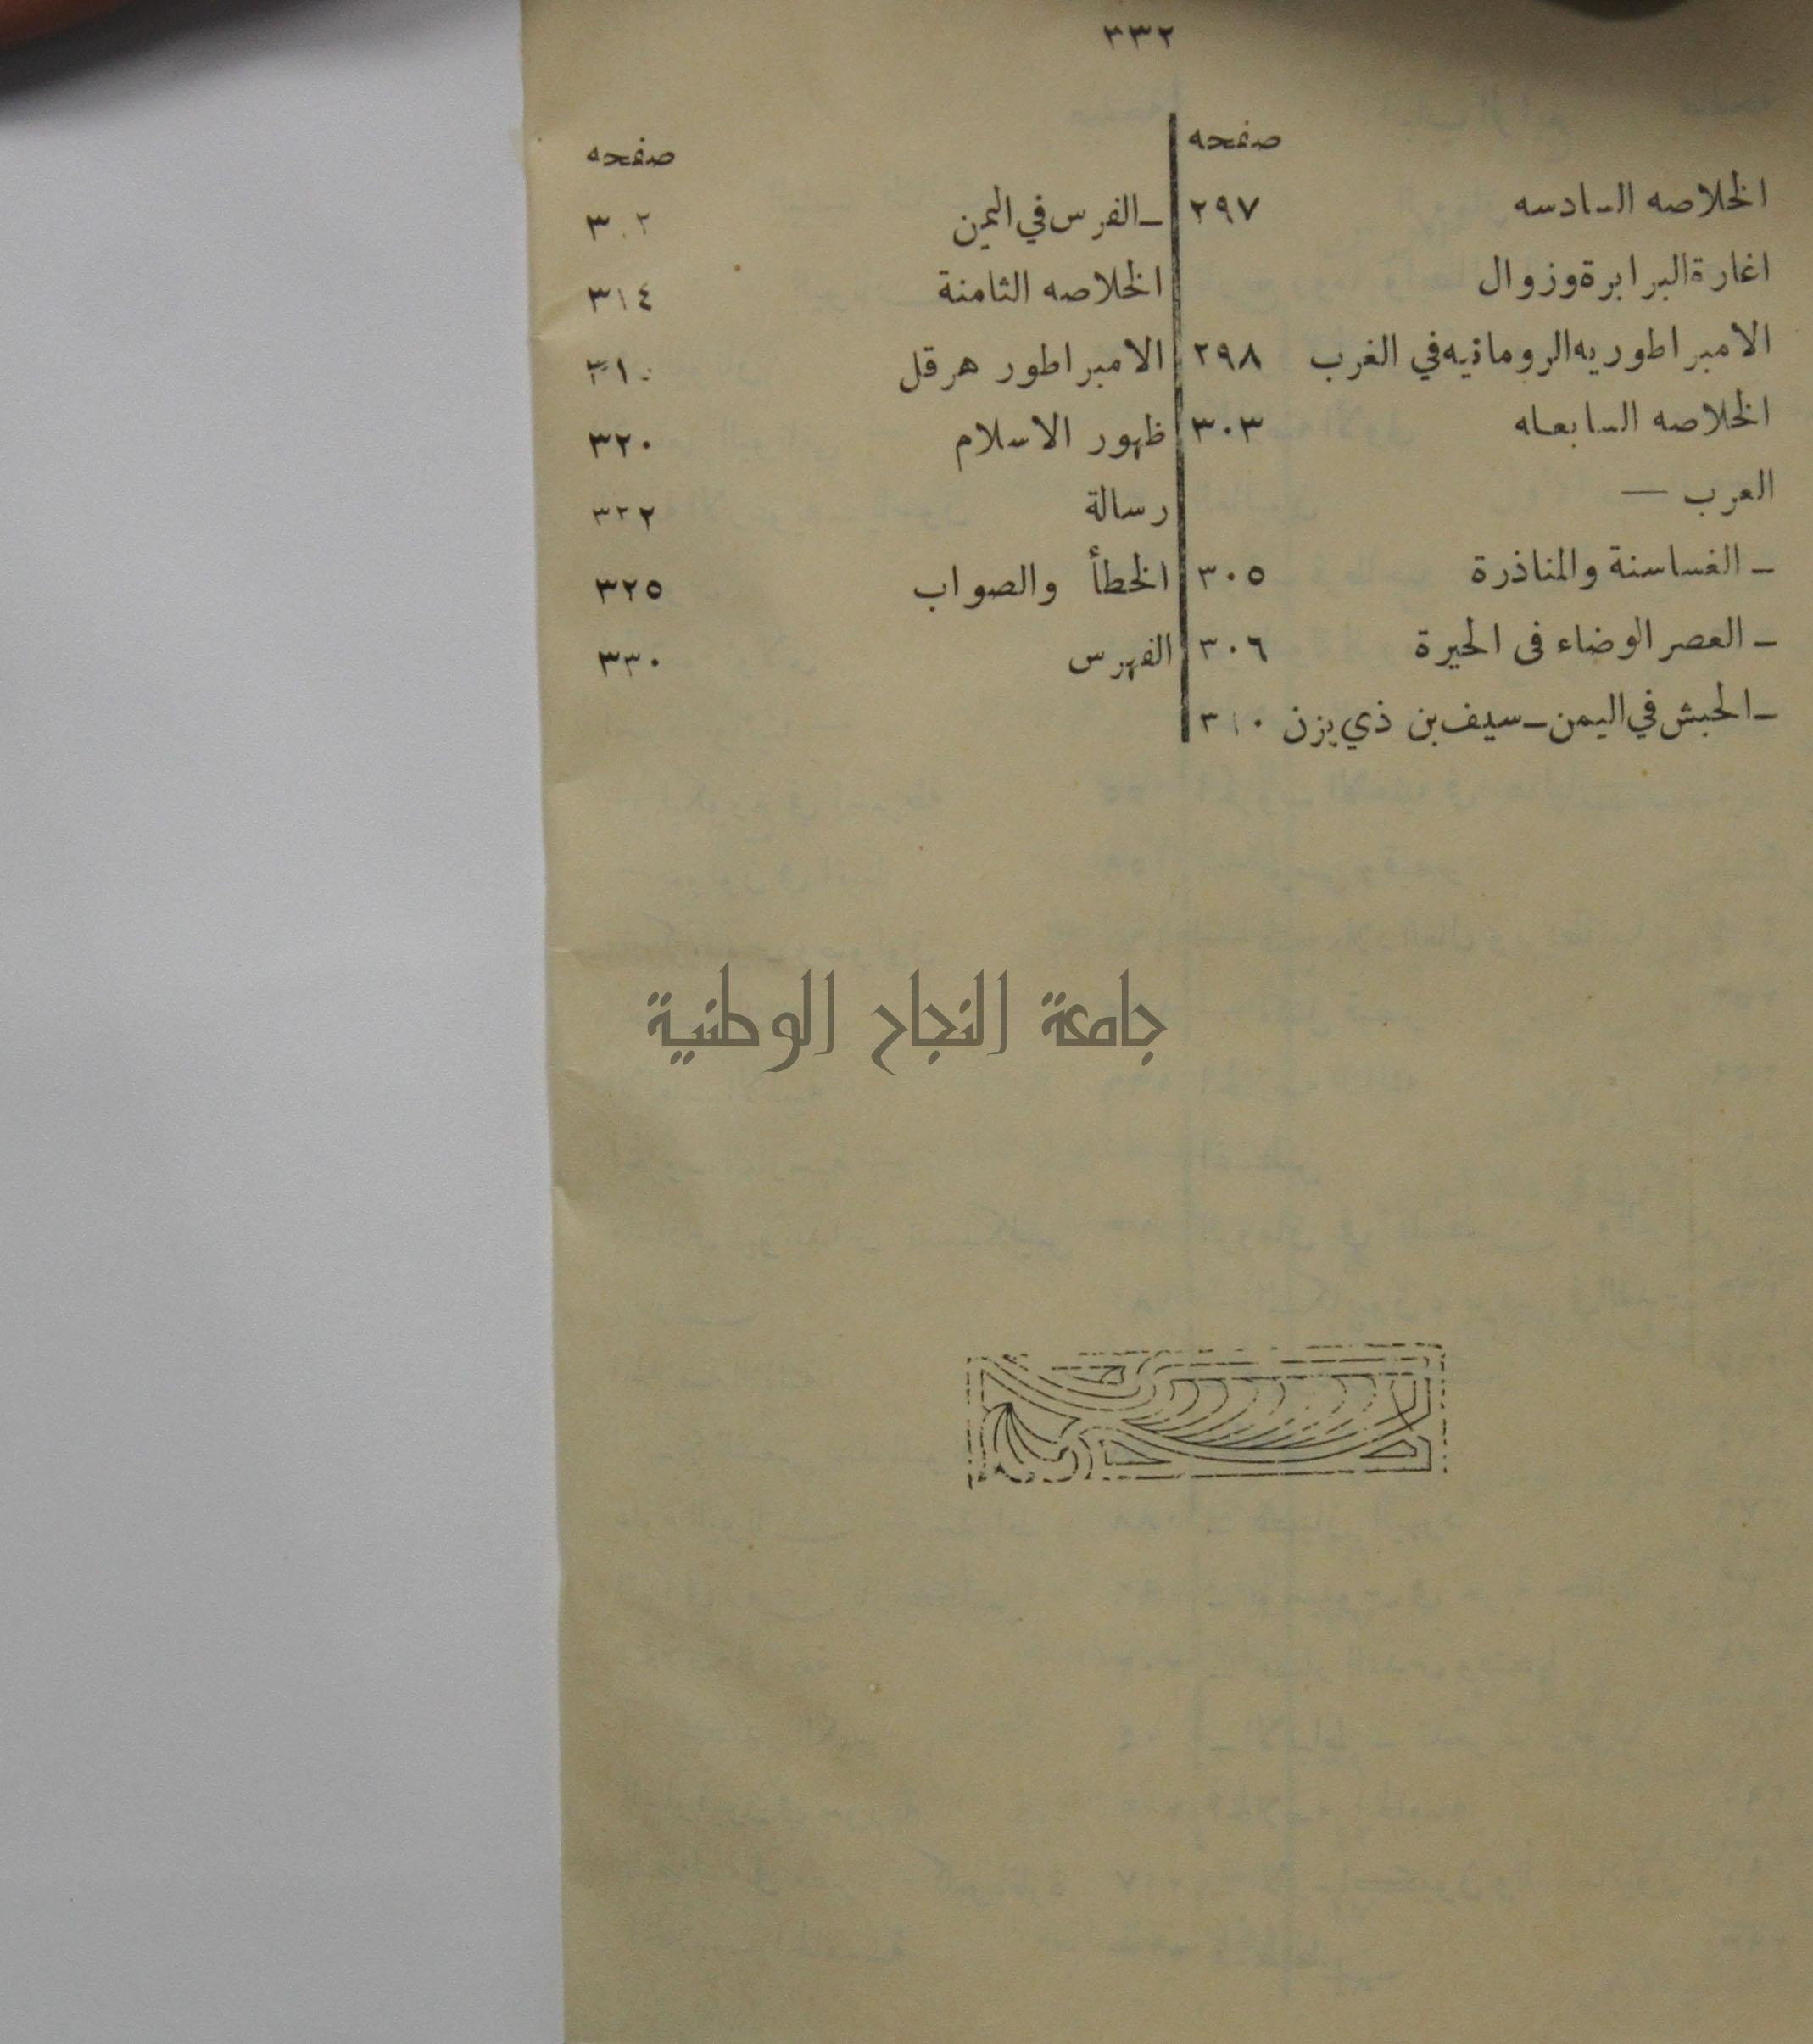 ٣٣٢
صفحه
الخلاصه السادسه ٢٩٧
اغارةالبرابرةوزوال
الامبراطوريه الرومانيه في الغرب ٢٩٨
الخلاصه السابعـه ٣٠٣
العرب —
ـ الغساسنة والمناذرة ٣٠٥
ـ العصر الوضاء فى الحيرة ٣٠٦
ـ الحبش في اليمن ـ سيف بن ذي يزن ٣١٠
صفحه
ـ الفرس في اليمن
الخلاصه الثامنة ٣١٤
الامبراطور هرقل
ظهور الاسلام ٣٢٠
رسالة ٣٢٢
الخطأ والصواب ٣٢٥
الفهرس ٣٣٠
جامعة النجاح الوطنية